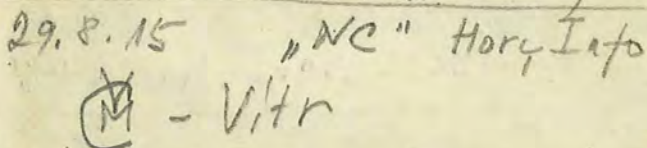 29.8.15 „NC" Hory, Info
M - Vítr